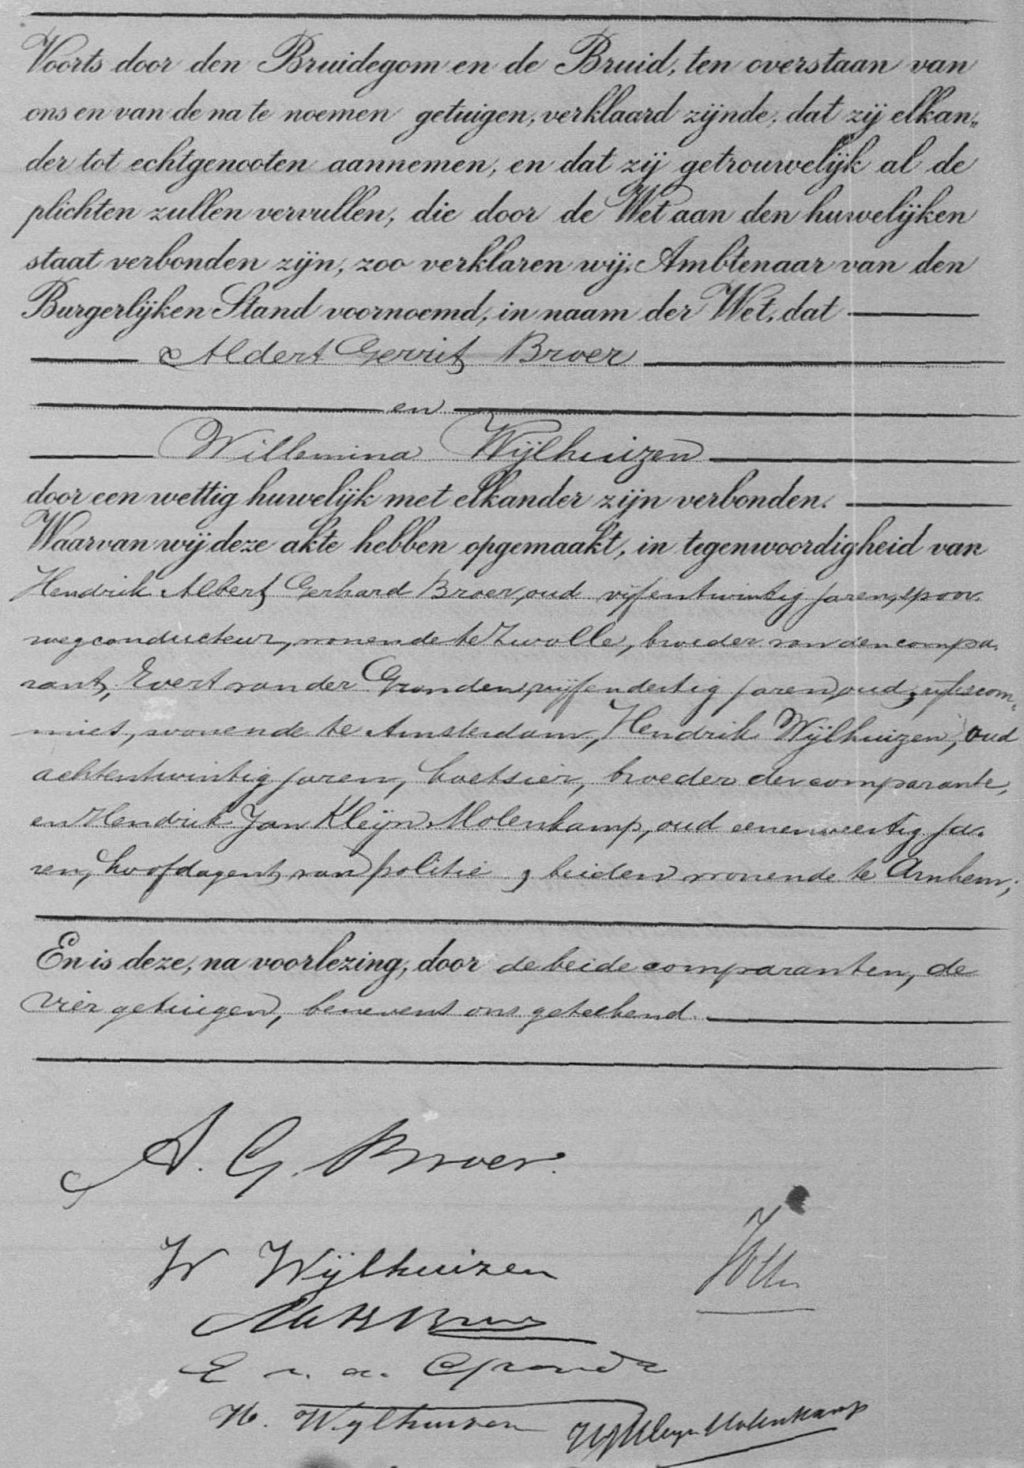 Voorts door den Bruidegom en de Bruid, ten overstaan van
ons en van de na te noemen getuigen, verklaard zijnde, dat zij elkan„
der tot echtgenooten aannemen, en dat zij getrouwelijk al de
plichten zullen vervullen, die door de Wet aan den huwelijken
staat verbonden zijn, zoo verklaren wij, Ambtenaar van den
Burgerlijken Stand voornoemd, in naam der Wet, dat
Aldert Gerrit Broer
en
Willemina Wijlhuizen
door een wettig huwelijk met elkander zijn verbonden.
Waarvan wij deze akte hebben opgemaakt, in tegenwoordigheid van
Hendrik Albert Gerhard Broer, oud vijfentwintig jaren, spoor-
wegconducteur, wonende te Zwolle, broeder van den compa-
rant, Evert van der Gronden, vijfendertig jaren oud, rijkscom-
mies, wonende te Amsterdam, Hendrik Wijlhuizen, oud
achtentwintig jaren, koetsier, broeder der comparante,
en Hendrik Jan Kleijn Molenkamp, oud eenenveertig ja-
ren, hoofdagent van politie, beiden wonende te Arnhem;
En is deze, na voorlezing, door de beide comparanten, de
vier getuigen, benevens ons geteekend.
A. G. Broer.
W Wijlhuizen
Broer
E v. d. Gronden
H. Wijlhuizen HJ Kleijn Molenkamp